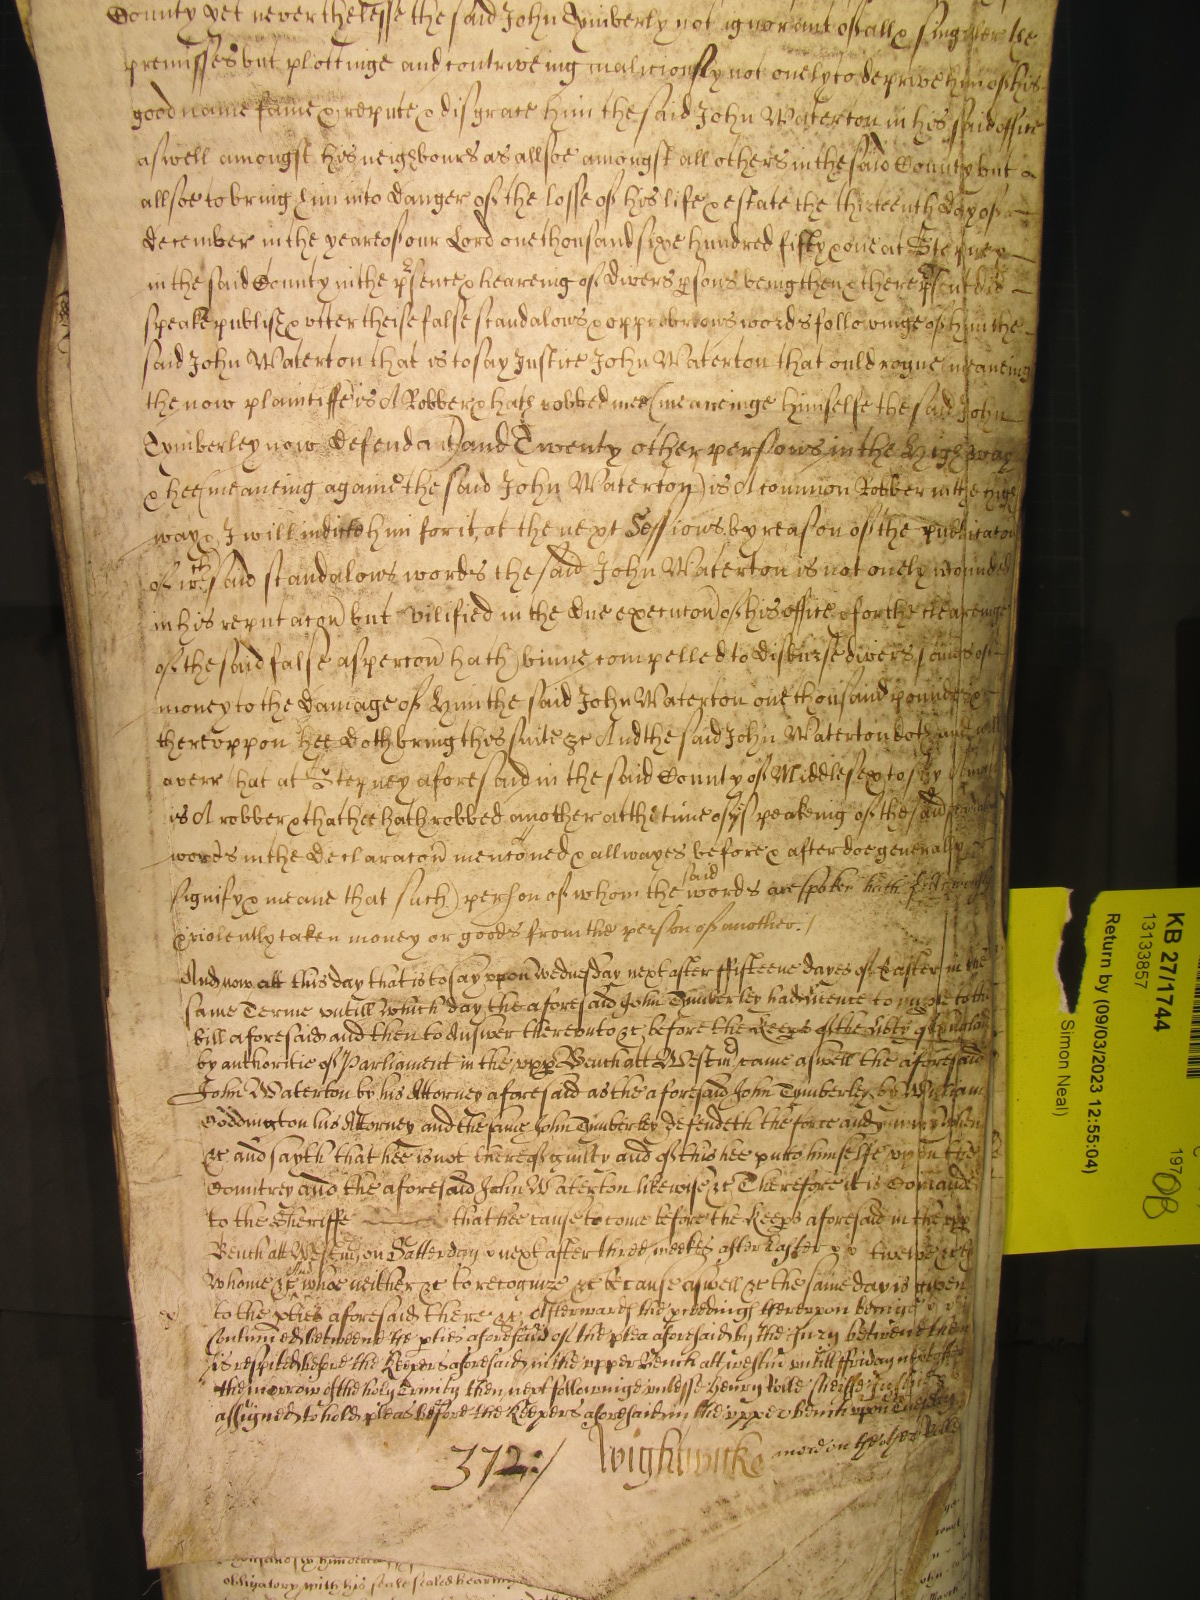 County yet neverthelesse the said John Tymberly not ignorant of all & singuler the
premisses but plottinge and contriveing maliciously not onely to deprive him of his
good name fame & repute & disgrace him the said John Waterton in his said office
aswell amongst his neighbours as allsoe amongst all others in the said County but
allsoe to bring him into danger of the losse of his life & estate the thirteenth day of
december in the yeare of our Lord one thousand sixe hundred fifty & one at Stepney
in the said County in the p'sence & heareing of divers p'sons being then & there p'sent did
speake publish & utter theise false scandalows & opprobriows words followinge of him the
said John Waterton that is to say Justice John Waterton that ould rogue (meaneing
the now plaintiffe) is A Robber & hath robbed mee (meaneinge himselfe the said John
Tymberley now defendant) and Twenty other persons in the High way
& hee (meaneing againe the said John Waterton) is A common Robber in the high
way & I will indicte him for it at the next Sessions by reason of the publicacon
of wch said scandalows words the said John Waterton is not onely wounded
in his reputacon but vilified in the due execucon of his office & for the cleareinge
of the said false aspercon hath binne compelled to disburse divers somes of
money to the damage of him the said John Waterton one thousand pounds &
thereuppon hee doth bring this suite &c And the said John Waterton doth and will
averr that at Stepney aforesaid in the said County of Middlesex to say
is A robber & that hee hath robbed another at the time of ye speakeing of the said
words in the declaracon mencioned & allwayes before & after doe generally
signify & meane that such person of whom the said words are spoken hath
& violently taken money or goods from the person of another./
And now att this day that is to say uppon Wednesday next after ffifteene dayes of Easter in the
same Terme untill which day the aforesaid John Tymberley had licence to imparle to the
bill aforesaid and then to Answer thereunto &c before the Keeps of the liberty of England
by authoritie of Parliament in the upp Bench att Westm came aswell the aforesaid
John Waterton by his Attorney aforesaid as the aforesaid John Tymberley by William
Goddington his Attorney and the same John Tymberley defendeth the force and injury when
&c and sayth that hee is not thereof guilty and of this hee putts himselfe upon the
Countrey and the aforesaid John Waterton likewise &c Therefore it is Comaunded
to the Sheriffe that hee cause to come before the Keeps aforesaid in the upp
Bench att Westm on Satterday next after three weekes after Easter twelve &c by
whome &c And whoe neither &c to recognize &c because aswell &c the same day is given
to the pties aforesaid there &c Afterwards the pceedings thereupon beinge
Continued betweene the pties aforesaid of the plea aforesaid by the Jury betweene them
is respited before the Keepers aforesaid in the upper Bench att westm untill ffriday next after
the morrow of the holy Trinity then next followinge unlesse Henry Rolle cheiffe Justice
assigned to hold pleas before the Keepers aforesaid in the upper Bench upon Tuesday
372:/ Wightwicke more on the other Rolle
obligatory with his seale sealed beareinge
KB 27/1744
13133857
Return by (09/03/2023 12:55:04)
Simon Neal)